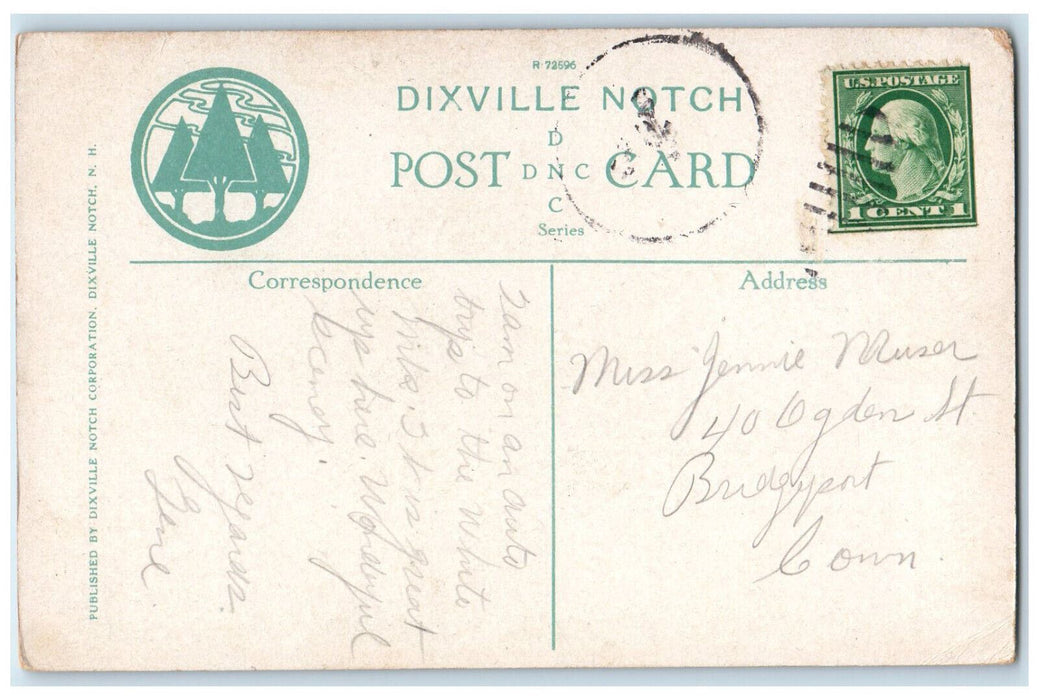 R-72596
DIXVILLE NOTCH
D
POST DNC CARD
C
Series
U.S. POSTAGE
1 CENT 1
Correspondence
Address
PUBLISHED BY DIXVILLE NOTCH CORPORATION, DIXVILLE NOTCH, N. H.
I am on an auto
trip to the White
Mts. It is great
up here. Wonderful
scenery.
Best regards.
Gene
Miss Jennie Muser
40 Ogden St
Bridgeport
Conn.